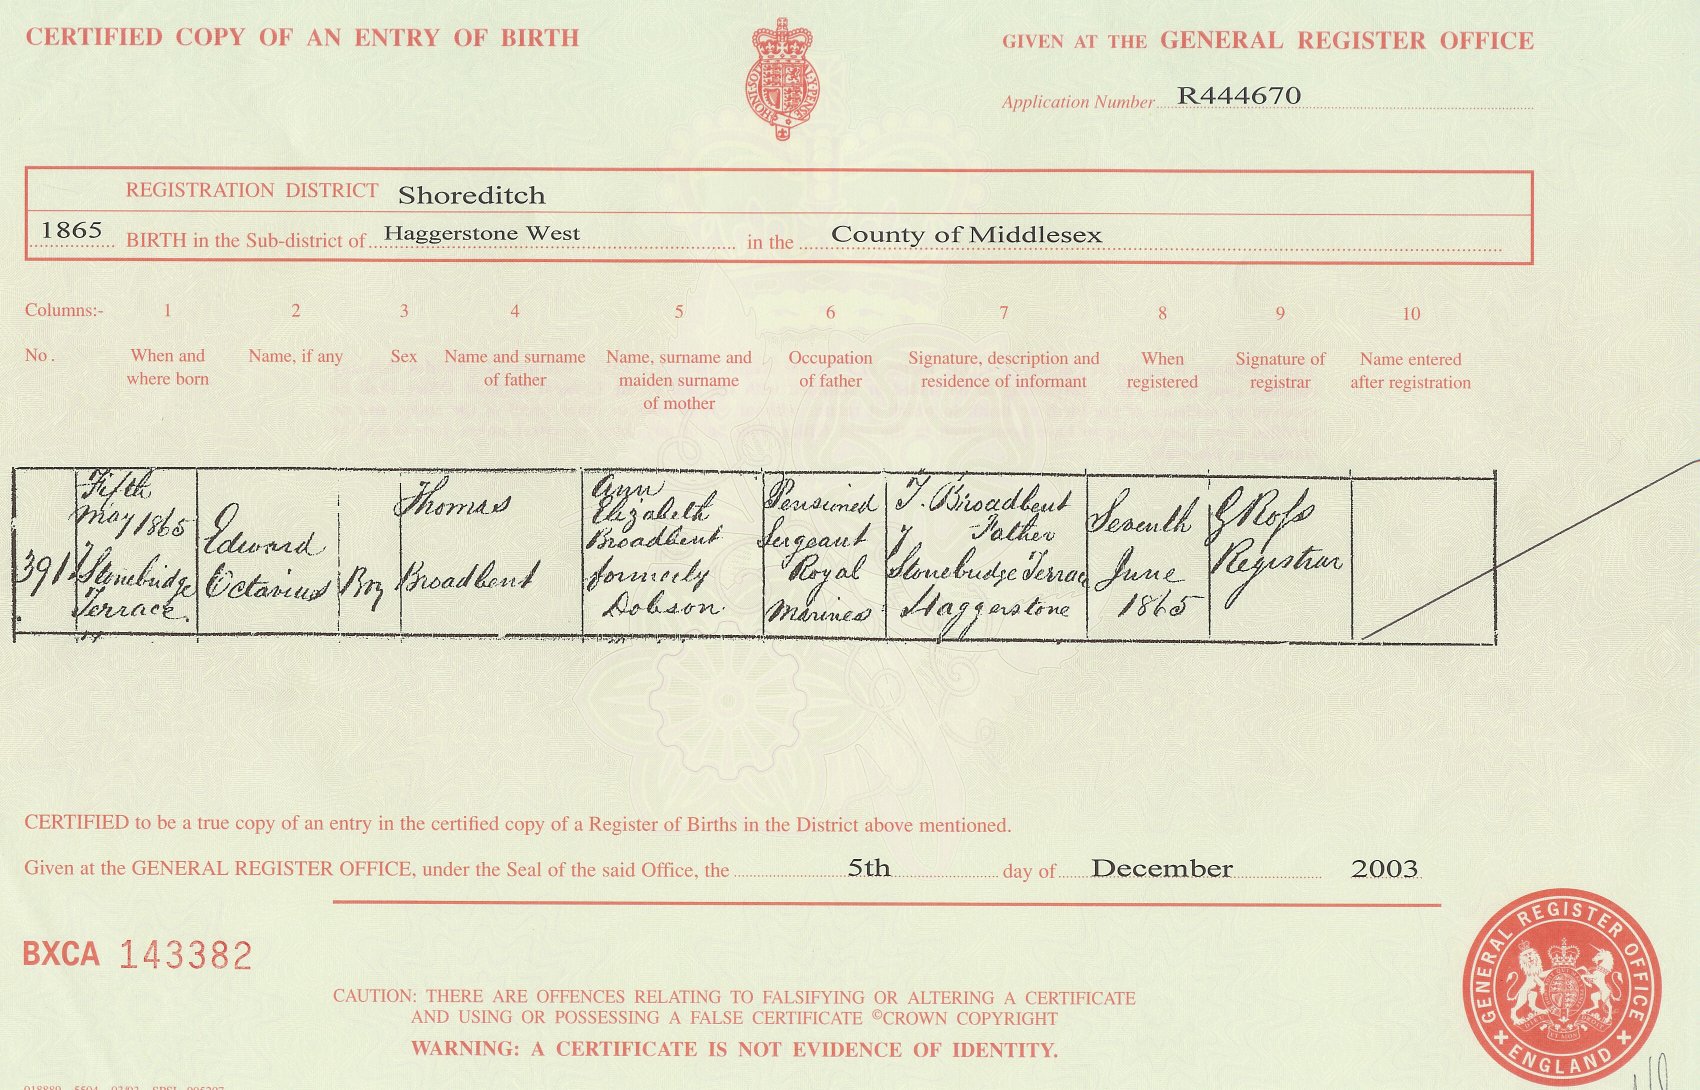 CERTIFIED COPY OF AN ENTRY OF BIRTH
GIVEN AT THE GENERAL REGISTER OFFICE
Application Number R444670
REGISTRATION DISTRICT Shoreditch
1865 BIRTH in the Sub-district of Haggerstone West in the County of Middlesex
Columns:- 1 2 3 4 5 6 7 8 9 10
No. When and where born
Name, if any
Sex
Name and surname of father
Name, surname and maiden surname of mother
Occupation of father
Signature, description and residence of informant
When registered
Signature of registrar
Name entered after registration
391
Fifth
May 1865
7 Stonebridge
Terrace.
Edward
Octavius
Boy
Thomas
Broadbent
Ann
Elizabeth
Broadbent
formerly
Dobson
Pensioned
Sergeant
Royal
Marines
T. Broadbent
Father
7
Stonebridge Terrace
Haggerstone
Seventh
June
1865
G Ross
Registrar
CERTIFIED to be a true copy of an entry in the certified copy of a Register of Births in the District above mentioned.
Given at the GENERAL REGISTER OFFICE, under the Seal of the said Office, the 5th day of December 2003
BXCA 143382
CAUTION: THERE ARE OFFENCES RELATING TO FALSIFYING OR ALTERING A CERTIFICATE
AND USING OR POSSESSING A FALSE CERTIFICATE ©CROWN COPYRIGHT
WARNING: A CERTIFICATE IS NOT EVIDENCE OF IDENTITY.
GENERAL REGISTER OFFICE
ENGLAND